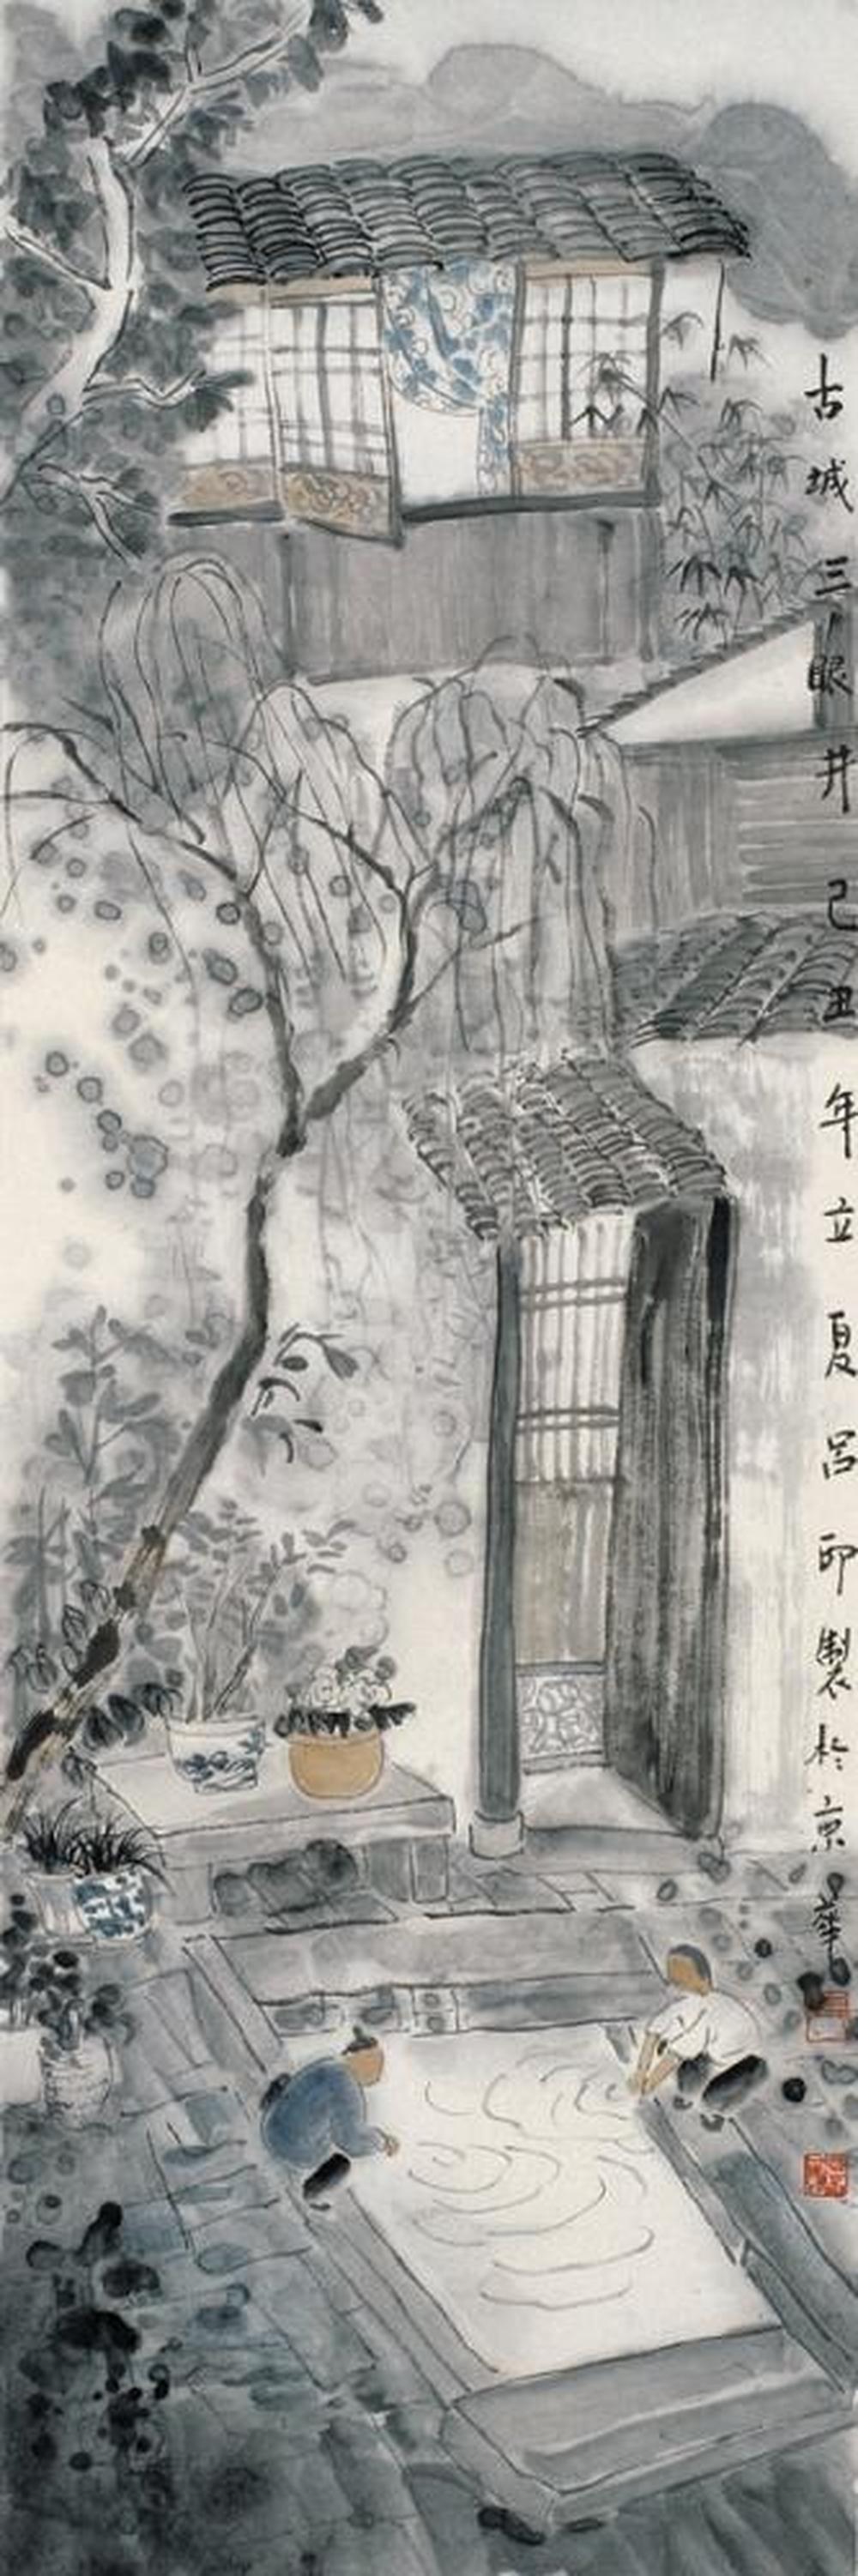 古城三眼井己丑年立夏呂印製於京華